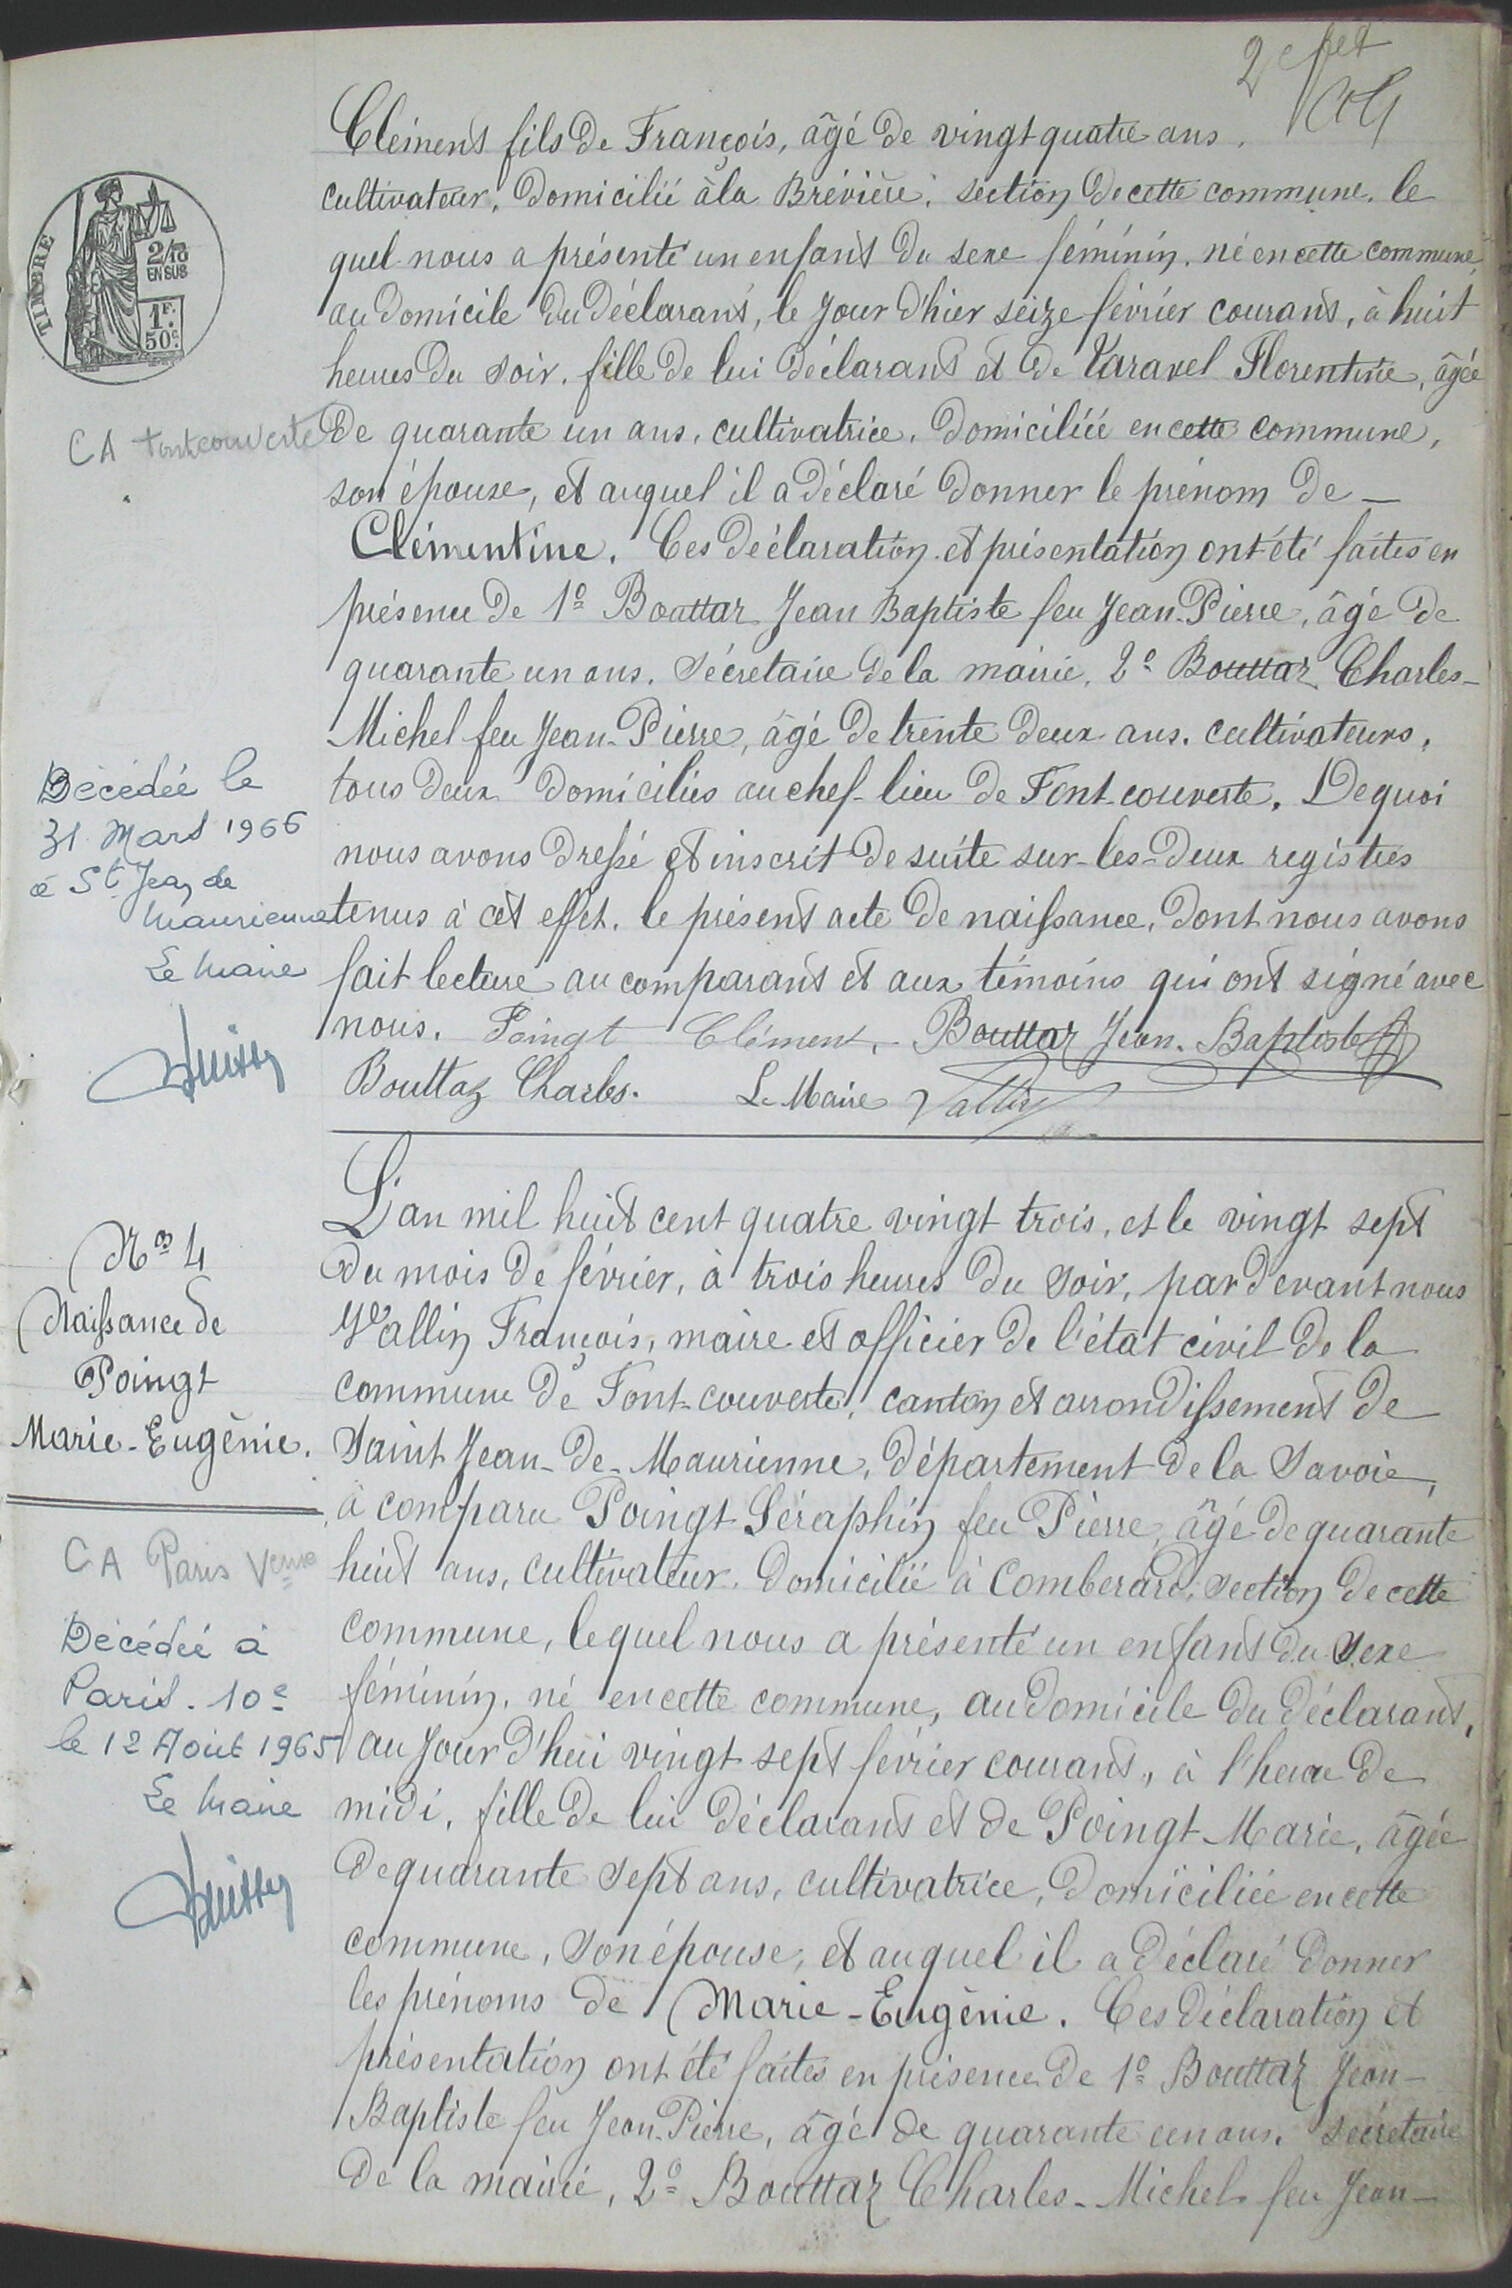 2e fet
Clément fils de François, âgé de vingt quatre ans.
cultivateur, domicilié à la Brévière, section de cette commune, le
quel nous a présenté un enfant du sexe féminin, né en cette commune,
au domicile du déclarant, le jour d'hier seize février courant, à huit
heures du soir, fille de lui déclarant et de Varavel Florentine, âgée
de quarante un ans, cultivatrice, domiciliée en cette commune,
son épouse, et auquel il a déclaré donner le prénom de —
Clémentine. Ces déclaration et présentation ont été faites en
présence de 1º Bouttaz Jean Baptiste feu Jean-Pierre, âgé de
quarante un ans, sécretaire de la mairie, 2º Bouttaz Charles-
Michel feu Jean-Pierre, âgé de trente deux ans, cultivateurs,
tous deux domiciliés au chef-lieu de Font-couverte. De quoi
nous avons dressé et inscrit de suite sur les deux registres
tenus à cet effet, le présent acte de naissance, dont nous avons
fait lecture au comparant et aux témoins qui ont signé avec
nous. Poingt Clément, Bouttaz Jean-Baptiste
Bouttaz Charles. Le Maire Vallin
TIMBRE
2/10
EN SUS
1F.
50c.
CA Fontcouverte
Décédée le
31 Mars 1966
à St Jean de
Maurienne
Le Maire
L'an mil huit cent quatre vingt trois, et le vingt sept
du mois de février, à trois heures du soir, par devant nous
Vallin François, maire et officier de l'état civil de la
commune de Font-couverte, canton et arrondissement de
Saint Jean-de-Maurienne, département de la Savoie,
à comparu Poingt Séraphin feu Pierre, âgé de quarante
huit ans, cultivateur, domicilié à Comberard, section de cette
commune, lequel nous a présenté un enfant du sexe
féminin, né en cette commune, au domicile du déclarant,
au jour d'hui vingt sept février courant, à l'heure de
midi, fille de lui déclarant et de Poingt Marie, âgée
de quarante sept ans, cultivatrice, domiciliée en cette
commune, son épouse, et auquel il a déclaré donner
les prénoms de Marie-Eugènie. Ces déclaration et
présentation ont été faites en présence de 1º Bouttaz Jean-
Baptiste feu Jean-Pierre, âgé de quarante un ans, sécretaire
de la mairie, 2º Bouttaz Charles-Michel feu Jean-
Nº 4
Naissance de
Poingt
Marie-Eugènie.
CA Paris Veuve
Décédée à
Paris. 10e
le 12 Août 1965
Le Maire